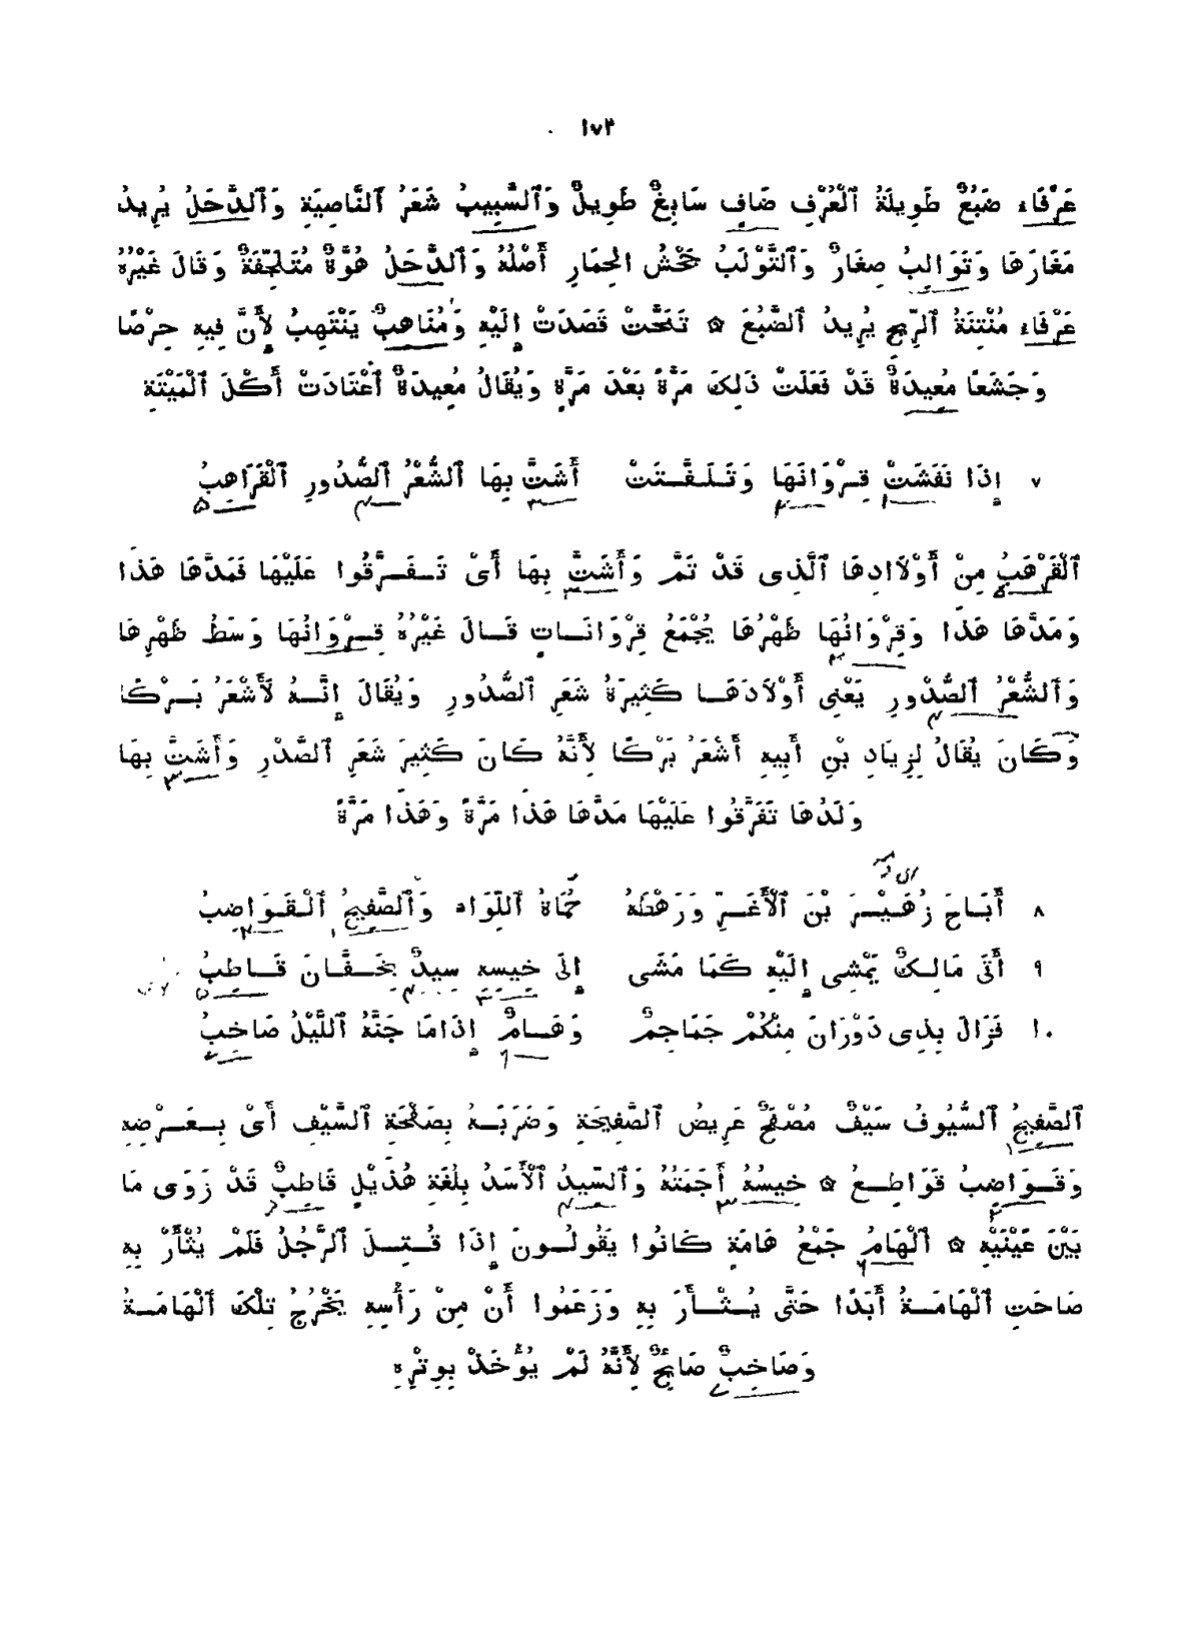 ١٧٣
عَرْفَاء ضَبُعٌ طَوِيلَةُ ٱلْعُرْفِ ضَافٍ سَابِغٌ طَوِيلٌ وَٱلسَّبِيبُ شَعَرُ ٱلنَّاصِيَةِ وَٱلدَّحَلُ يُرِيدُ
مَغَارَهَا وَتَوَالِبُ صِغَارٌ وَٱلتَّوْلَبُ جَحْشُ الحِمَارِ أَصْلُهُ وَٱلدَّحَلُ هُوَّةٌ مُتَلَجِّفَةٌ وَقَالَ غَيْرُهُ
عَرْفَاء مُنْتِنَةُ ٱلرِّيحِ يُرِيدُ ٱلضَّبُعَ ۞ تَنَحَّتْ قَصَدَتْ إِلَيْهِ وَمُنَاهِبٌ يَنْتَهِبُ لِأَنَّ فِيهِ حِرْصًا
وَجَشَعًا مُعِيدَةٌ قَدْ فَعَلَتْ ذَلِكَ مَرَّةً بَعْدَ مَرَّةٍ وَيُقَالُ مُعِيدَةٌ ٱعْتَادَتْ أَكْلَ ٱلْمَيْتَةِ
٧ إِذَا نَفَشَتْ قِرْوَانَهَا وَتَلَفَّتَتْ أَشَتَّ بِهَا ٱلشُّعْرُ ٱلصُّدُورِ ٱلْقَرَاهِبُ
ٱلْقَرْهَبُ مِنْ أَوْلَادِهَا ٱلَّذِى قَدْ تَمَّ وَأَشَتَّ بِهَا أَىْ تَفَرَّقُوا عَلَيْهَا فَمَدَّهَا هَذَا
وَمَدَّهَا هَذَا وَقِرْوَانُهَا ظَهْرُهَا يُجْمَعُ قِرْوَانَاتٍ قَالَ غَيْرُهُ قِرْوَانُهَا وَسَطُ ظَهْرِهَا
وَٱلشُّعْرُ ٱلصُّدُورِ يَعْنِى أَوْلَادَهَا كَثِيرَةُ شَعَرِ ٱلصُّدُورِ وَيُقَالَ إِنَّهُ لَأَشْعَرُ بَرْكًا
وَكَانَ يُقَالُ لِزِيَادِ بْنِ أَبِيهِ أَشْعَرُ بَرْكًا لِأَنَّهُ كَانَ كَثِيرَ شَعَرِ ٱلصَّدْرِ وَأَشَتَّ بِهَا
وَلَدُهَا تَفَرَّقُوا عَلَيْهَا مَدَّهَا هَذَا مَرَّةً وَهَذَا مَرَّةً
٨ أَبَاحَ زُهَيْرَ بْنَ ٱلْأَغَرِّ وَرَهْطَهُ حُمَاةُ ٱللِّوَاء وَٱلصَّفِيحُ ٱلْقَوَاضِبُ
٩ أَتَى مَالِكٌ يَمْشِى إِلَيْهِ كَمَا مَشَى إِلَى خِيسِهِ سِيدٌ بِخَفَّانَ قَاطِبُ
١٠ فَزَالَ بِذِى دَوْرَانَ مِنْكُمْ جَمَاجِمٌ وَهَامٌ إِذَا مَا جَنَّهُ ٱللَّيْلُ صَاخِبُ
ٱلصَّفِيحُ ٱلسُّيُوفُ سَيْفٌ مُصْفَحٌ عَرِيضُ ٱلصَّفِيحَةِ وَضَرَبَهُ بِصَفْحَةِ ٱلسَّيْفِ أَىْ بِعَرْضِهِ
وَقَوَاضِبُ قَوَاطِعُ ۞ خِيسُهُ أَجَمَتُهُ وَٱلسِّيدُ ٱلْأَسَدُ بِلُغَةِ هُذَيْلٍ قَاطِبٌ قَدْ زَوَى مَا
بَيْنَ عَيْنَيْهِ ۞ ٱلْهَامُ جَمْعُ هَامَةٍ كَانُوا يَقُولُونَ إِذَا قُتِلَ ٱلرَّجُلُ فَلَمْ يُثْأَرْ بِهِ
صَاحَتِ ٱلْهَامَةُ أَبَدًا حَتَّى يُثْأَرَ بِهِ وَزَعَمُوا أَنْ مِنْ رَأْسِهِ يَخْرُجُ تِلْكَ ٱلْهَامَةُ
وَصَاخِبٌ صَايِحٌ لِأَنَّهُ لَمْ يُؤْخَذْ بِوِتْرِهِ